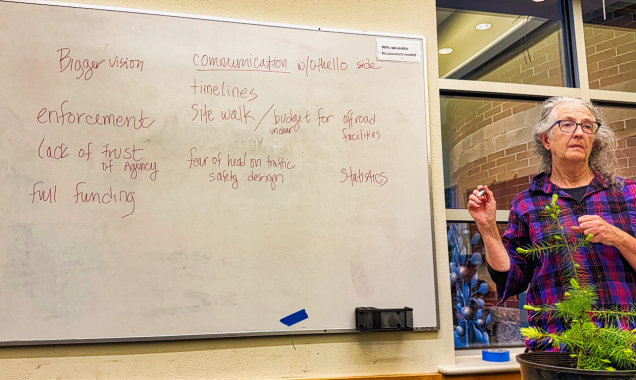 Bigger vision
communication w/othello side
timelines
enforcement
Site walk / budget for off road
unclear
facilities
lack of trust
of Agency
fear of head on traffic
safety design
Statistics
full funding